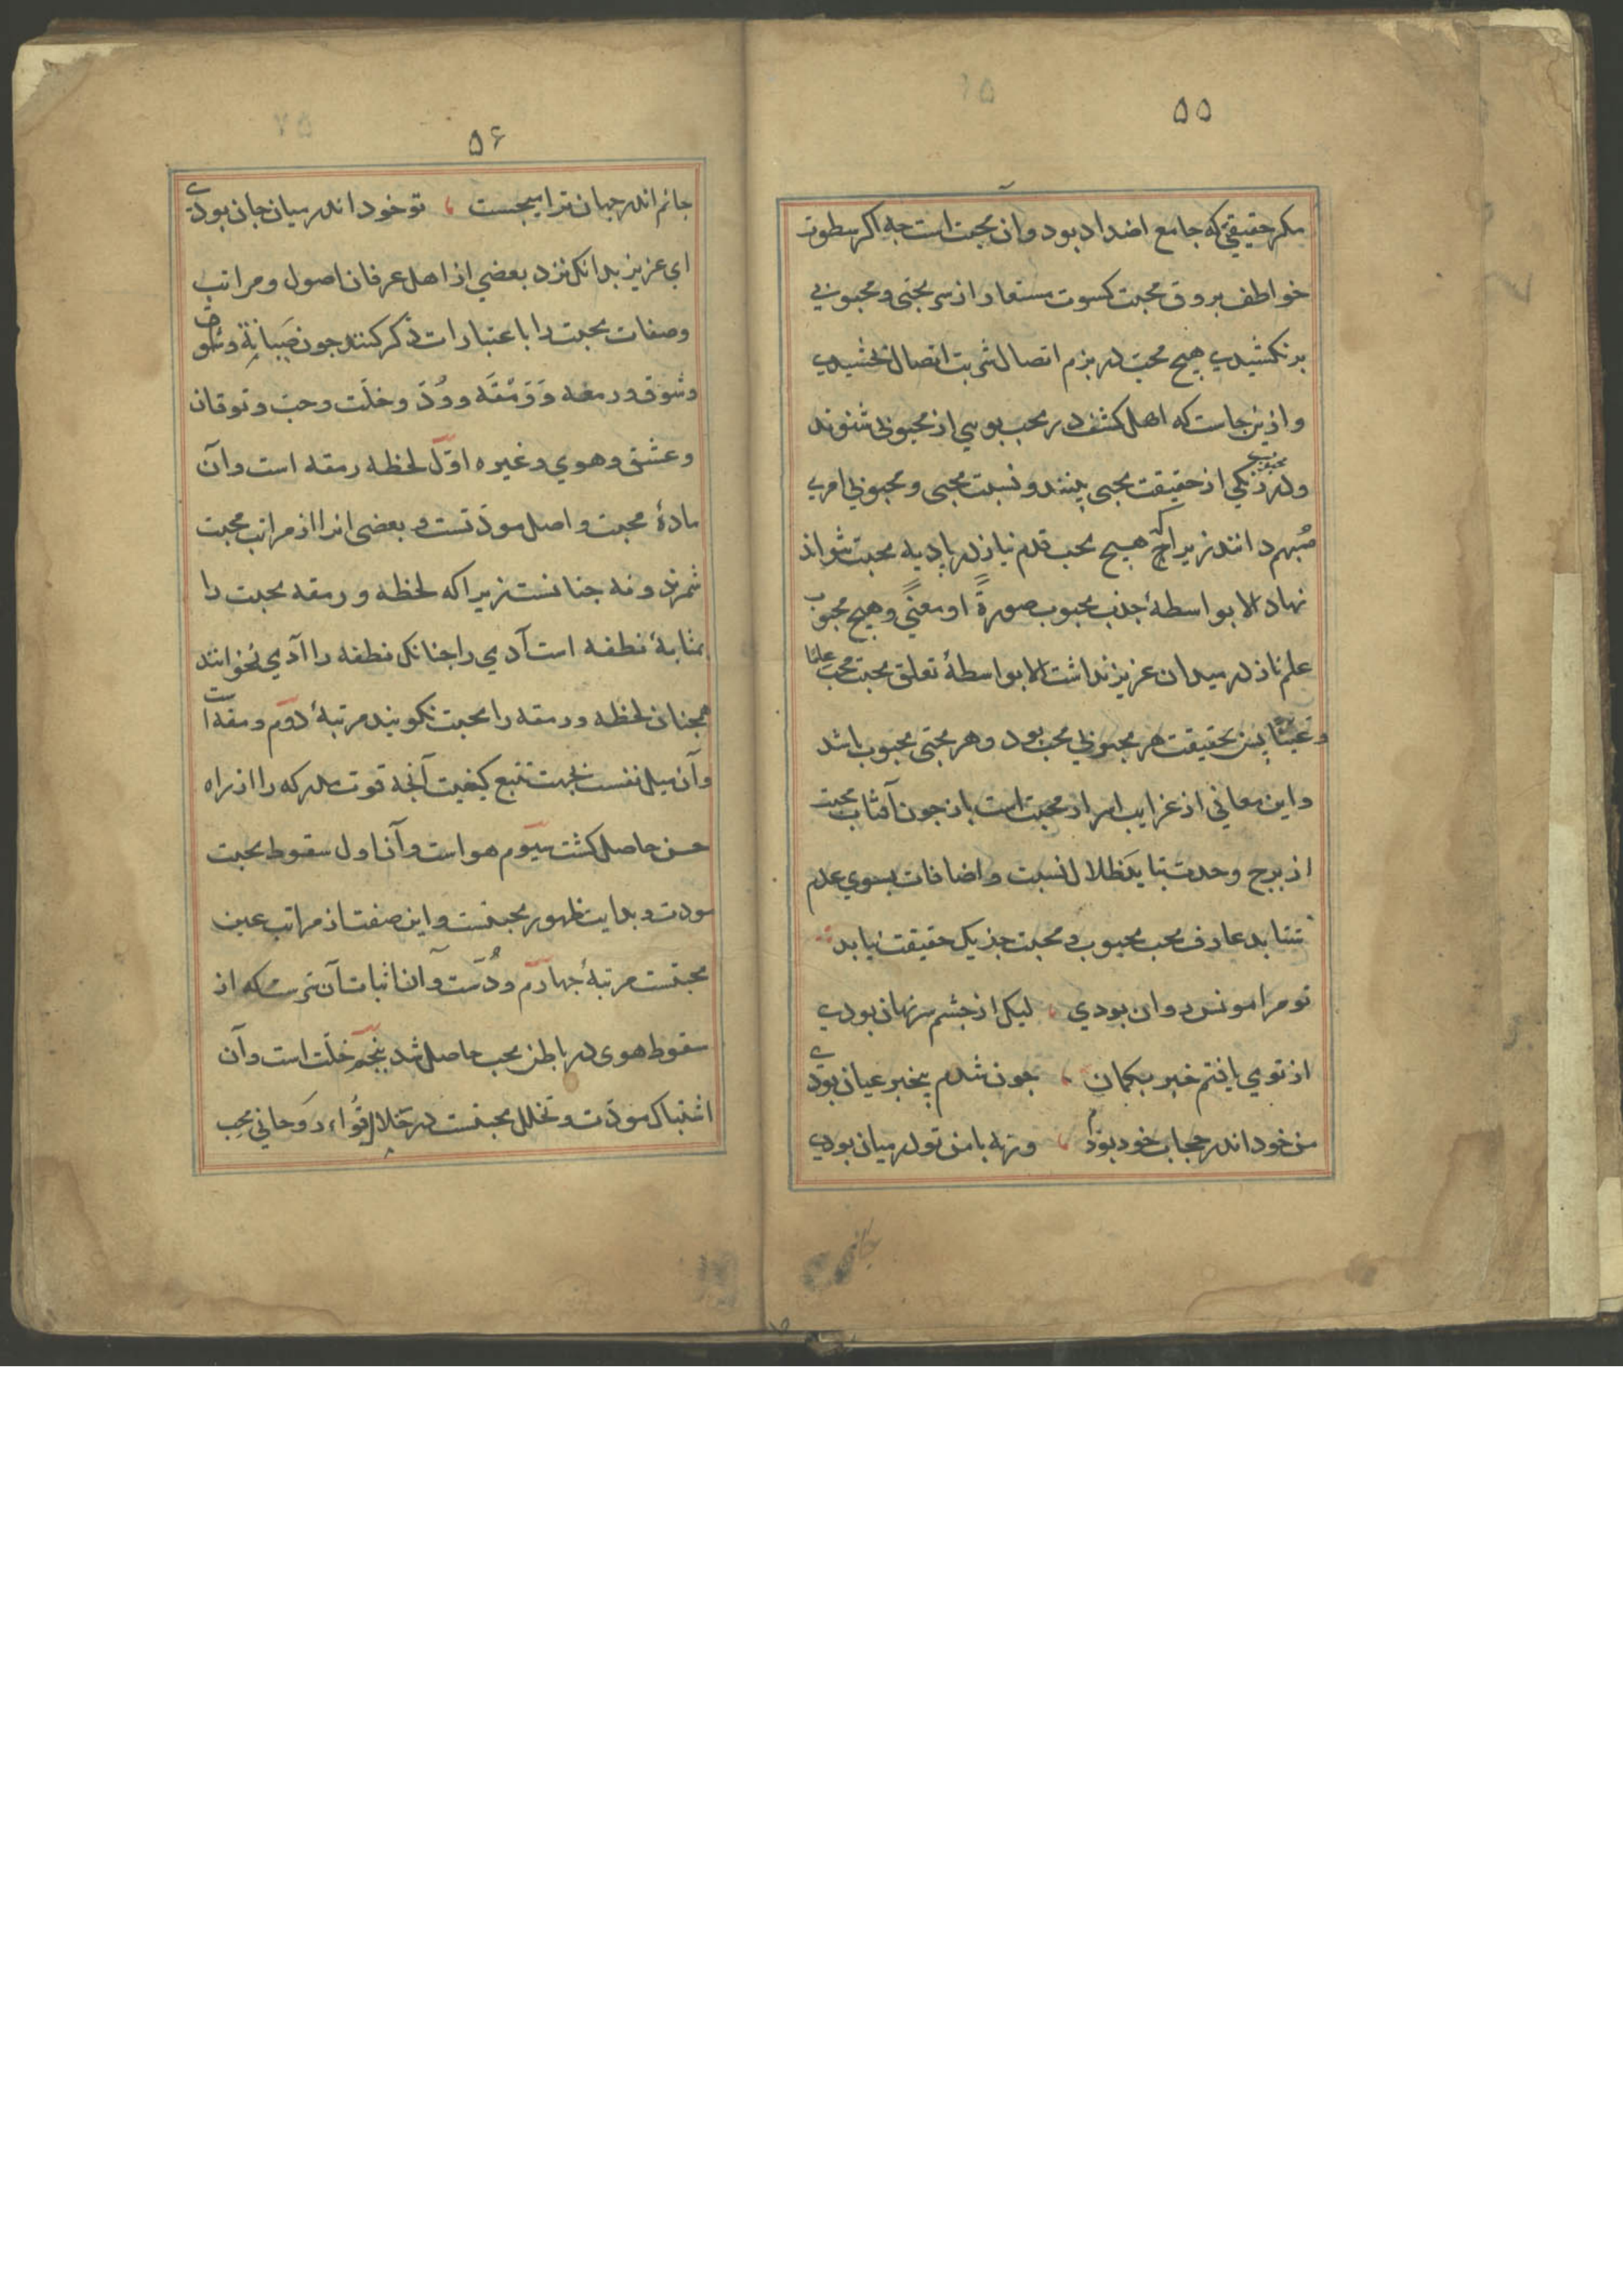 ۵۵
مکر حقیقتی که جامع اضداد بود و آن محبت است جه اکر سطوت
خواطف بروق محبت کسوت مستعار از سر محبی و محبوبی
برنکشیدی هیچ محب در بزم اتصال شربت اتصال نچشیدی
و ازینجاست که اهل کشف در محب بویی از محبوبی شنوند
و در محبوب رنکی از حقیقت محبی بینند و نسبت محبی و محبوبی امری
مُبهم دانند زیراکه هیچ محب قدم نیاز در بادیه محبت نتواند
نهاد الا بواسطهٔ جذب محبوب صورةً او معنیً و هیچ محبوب
علم ناز در میدان عزیز نداشت الا بواسطهٔ تعلق محبت محب علمًا
و عینًا پس بحقیقت هر محبوبی محب بود و هر محبی محبوب باشد
و این معانی از غرایب اسرار محبت است باز جون آفتاب محبت
از برج وحدت بتابد ظلال نسبت و اضافات بسوی عدم
بشتابد عارف محب محبوب و محبت جز یک حقیقت نیابد
تو مرا مونس روان بودی لیکن از جشم سر نهان بودی
از تو می یافتم خبر بکمان جون شدم بیخبر عیان بودی
من خود اندر حجاب خود بودم ورنه با من تو در میان بودی
جانم
۵۶
جانم اندر جهان ترا میجست تو خود اندر میان جان بودی
ای عزیز بدانک نزد بعضی از اهل عرفان اصول و مراتب
و صفات محبت را باعتبارات ذکر کنند جون صَبَابَة و شوق
و شوق و رمقه وَ وَمْقَه و وُدّ و خلّت و حبّ و توقان
و عشق و هوی و غیره اوّل لحظه رمقه است و آن
مادهٔ محبت و اصل مودّتست و بعضی انرا از مراتب محبت
شمرند و نه جنانست زیراکه لحظه و رمقه محبت را
بمثابهٔ نطفه است آدمی را جنانک نطفه را آدمی نخوانند
همجنان لحظه و رمقه را محبت نکویند مرتبهٔ دوّم ومقه است
و آن میل نفست بجهت تتبع کیفیت آنجه قوت مدرکه را از راه
حسن حاصل کشت سیوّم هواست و آن اول سقوط محبت
مودت و بدایت ظهور محبتست و این صفت از مراتب عین
محبتست مرتبهٔ جهارّم ودُست و آن اثبات آن سرّست که از
سقوط هوی در باطن محب حاصل شد بنجم خلّت است و آن
اشتباک مودّت و تخلل محبتست در خلال قُواء روحانی محب